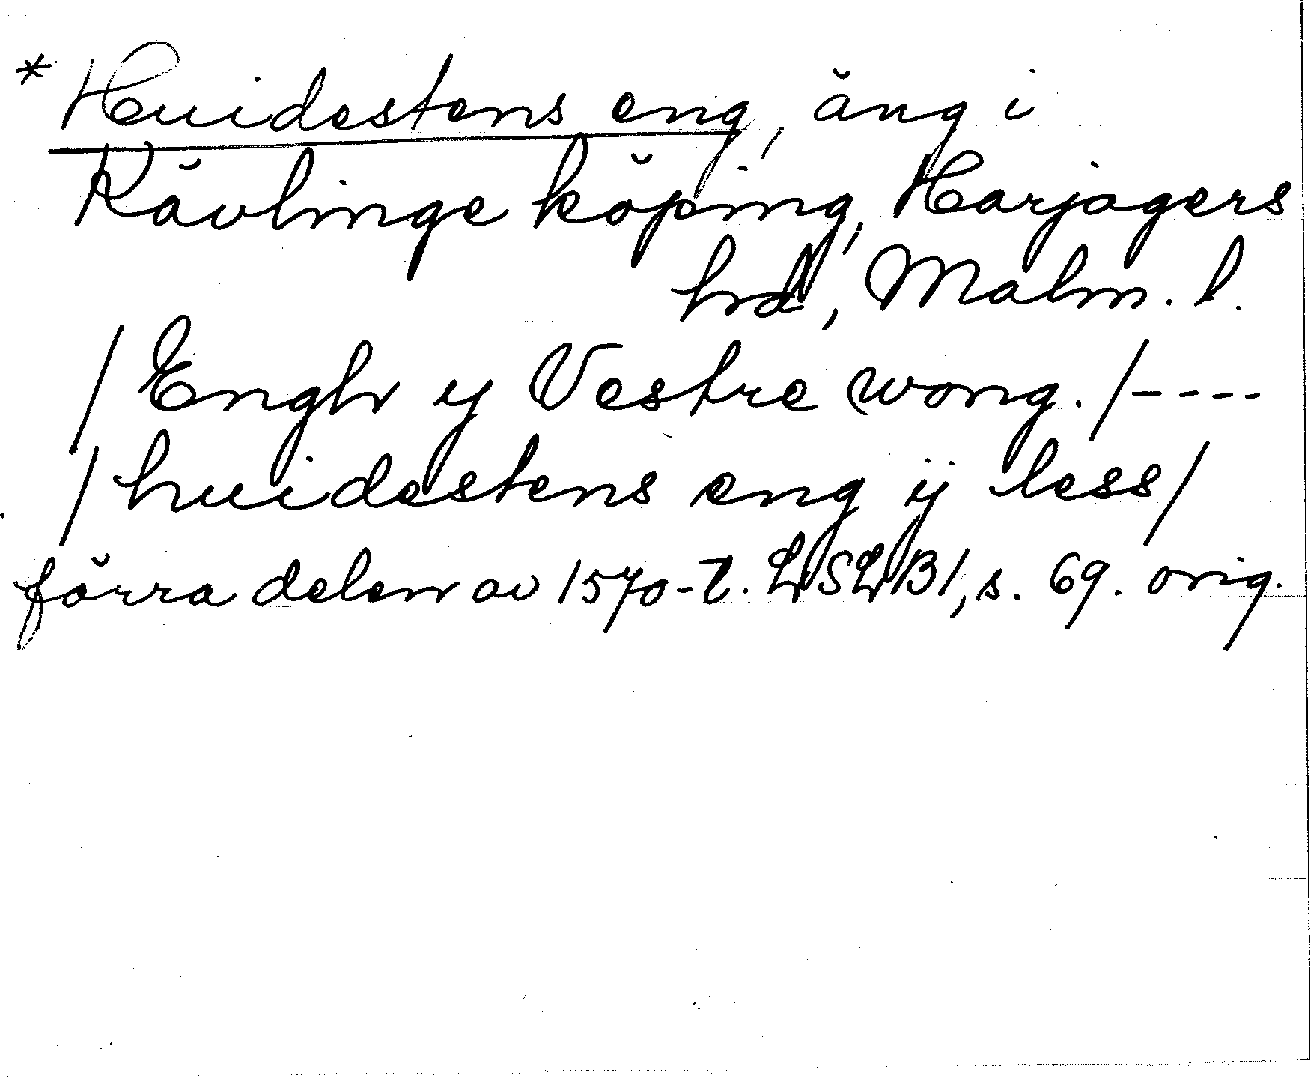 * Huidestens eng, äng i
Kävlinge köping, Harjagers
hrd, Malm. l.
/Engh y Vestre wong./----
/huidestens eng ij less/
förra delen av 1570-t. LSLB1, s. 69. orig.